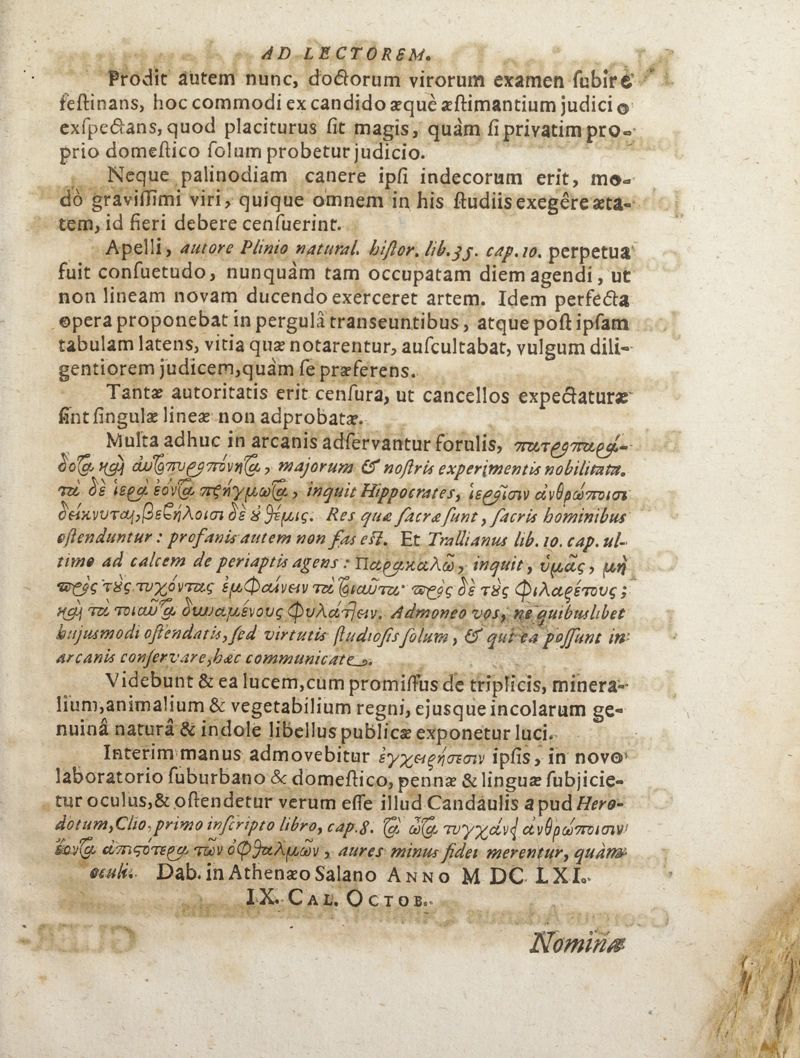 AD LECTOREM.
Prodit autem nunc, doctorum virorum examen ſubire
feſtinans, hoc commodi ex candido æquè æſtimantium judicio
exſpectans, quod placiturus ſit magis, quàm ſi privatim pro-
prio domeſtico ſolum probetur judicio.
Neque palinodiam canere ipſi indecorum erit, mo-
dò graviſſimi viri, quique omnem in his ſtudiis exegêre æta-
tem, id fieri debere cenſuerint.
Apelli, autore Plinio natural. hiſtor. lib. 35. cap. 10. perpetua
fuit conſuetudo, nunquàm tam occupatam diem agendi, ut
non lineam novam ducendo exerceret artem. Idem perfecta
opera proponebat in pergulâ transeuntibus, atque poſt ipſam
tabulam latens, vitia quæ notarentur, auſcultabat, vulgum dili-
gentiorem judicem, quàm ſe præferens.
Tantæ autoritatis erit cenſura, ut cancellos expectaturæ
ſint ſingulæ lineæ non adprobatæ.
Multa adhuc in arcanis adſervantur forulis, πατροπαρά-
δοτα καὶ αὐτοπυροπόνητα, majorum & noſtris experimentis nobilitata.
τὰ δὲ ἱερὰ ἐόντα πρήγματα, inquit Hippocrates, ἱεροῖσιν ἀνθρώποισι
δείκνυται, βεβήλοισι δὲ ȣ θέμις. Res quæ ſacræ ſunt, ſacris hominibus
oſtenduntur: profanis autem non fas eſt. Et Trallianus lib. 10. cap. ul-
timo ad calcem de periaptis agens: Παρακαλῶ, inquit, ὑμᾶς, μὴ
πρὸς τȣς τυχόντας ἐμφαίνειν τὰ τοιαῦτα· πρὸς δὲ τȣς φιλαρέτους;
καὶ τὰ τοιαῦτα δυναμένους φυλάττειν. Admoneo vos, ne quibuslibet
hujusmodi oſtendatis, ſed virtutis ſtudioſis ſolum, & qui ea poſſunt in
arcanis conſervare, hæc communicate.
Videbunt & ea lucem, cum promiſſus de triplicis, minera-
lium, animalium & vegetabilium regni, ejusque incolarum ge-
nuinâ naturâ & indole libellus publicæ exponetur luci.
Interim manus admovebitur ἐγχειρήσεσιν ipſis, in novo
laboratorio ſuburbano & domeſtico, pennæ & linguæ ſubjicie-
tur oculus, & oſtendetur verum eſſe illud Candaulis apud Hero-
dotum, Clio, primo inſcripto libro, cap. 8. τὰ ὦτα τυγχάνει ἀνθρώποισιν
ἐόντα ἀπιϛότερα τῶν ὀφθαλμῶν, aures minus fidei merentur, quàm
oculi. Dab. in Athenæo Salano ANNO M DC LXI.
IX. CAL. OCTOB.
Nomina